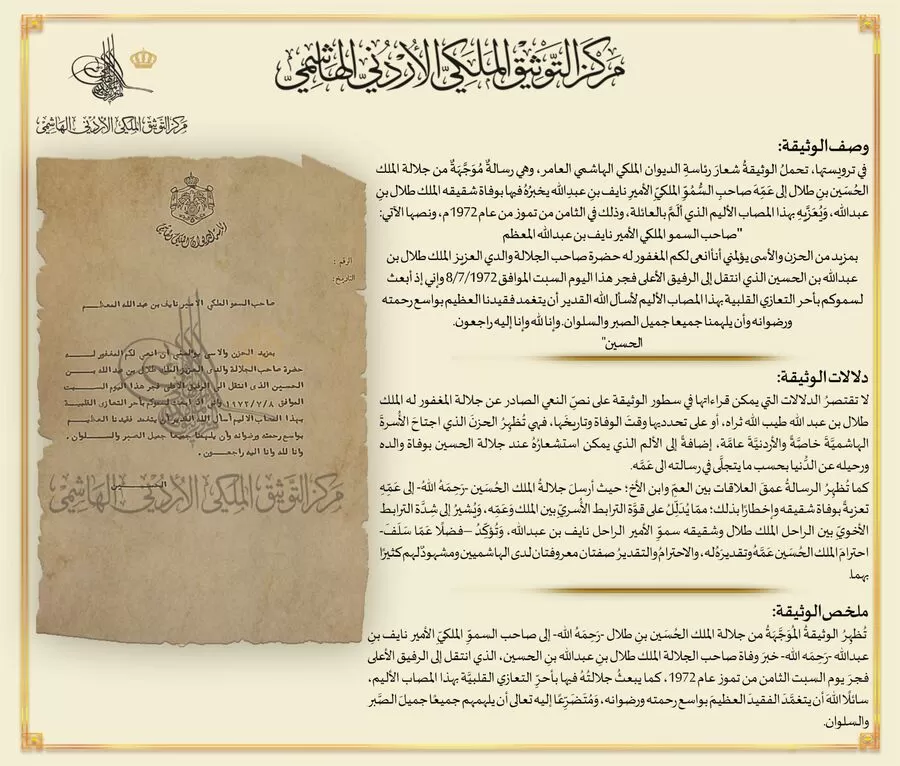 مركز التوثيق الملكي الأردني الهاشمي
مركز التوثيق الملكي الأردني الهاشمي
وصف الوثيقة:
في ترويستها، تحملُ الوثيقةُ شعارَ رئاسةِ الديوان الملكي الهاشمي العامر، وهي رسالةٌ مُوَجَّهَةٌ من جلالة الملك
الحُسَين بنِ طلال إلى عَمِّهِ صاحبِ السُّمُوِّ الملكيِّ الأميرِ نايف بنِ عبدالله يخبرُهُ فيها بوفاة شقيقه الملك طلال بنِ
عبدالله، ويُعَزِّيهِ بهذا المصاب الأليم الذي ألَمَّ بالعائلة، وذلك في الثامن من تموز من عام 1972م، ونصها الآتي:
"صاحب السمو الملكي الأمير نايف بن عبدالله المعظم
بمزيد من الحزن والأسى يؤلمني أن أنعى لكم المغفور له حضرة صاحب الجلالة والدي العزيز الملك طلال بن
عبدالله بن الحسين الذي انتقل إلى الرفيق الأعلى فجر هذا اليوم السبت الموافق 8/7/1972 وإني إذ أبعث
لسموكم بأحر التعازي القلبية بهذا المصاب الأليم لأسأل الله القدير أن يتغمد فقيدنا العظيم بواسع رحمته
ورضوانه وأن يلهمنا جميعا جميل الصبر والسلوان. وإنا لله وإنا إليه راجعون.
الحسين"
دلالات الوثيقة:
لا تقتصرُ الدلالات التي يمكن قراءاتها في سطور الوثيقة على نصّ النعي الصادر عن جلالة المغفور له الملك
طلال بن عبد الله طيب الله ثراه، أو على تحديدها وقتَ الوفاة وتاريخَها، فهي تُظهِرُ الحزنَ الذي اجتاحَ الأُسرةَ
الهاشميَّةَ خاصَّةً والأردنيَّةَ عامَّة، إضافةً إلى الألم الذي يمكن استشعارُهُ عند جلالة الحسين بوفاة والده
ورحيله عن الدُّنيا بحسب ما يتجلَّى في رسالته الى عَمِّه.
كما تُظهِرُ الرسالةُ عمقَ العلاقات بين العمّ وابن الأخ؛ حيث أرسلَ جلالةُ الملك الحُسَين -رَحِمَهُ اللهُ- إلى عَمِّهِ
تعزيةً بوفاة شقيقه وإخطارًا بذلك؛ ممّا يُدَلِّلُ على قوَّة الترابط الأُسريّ بين الملك وعَمِّه، ويُشيرُ إلى شِدَّة الترابط
الأخويّ بين الراحل الملك طلال وشقيقه سموّ الأمير الراحل نايف بن عبدالله، وتُؤكِّدُ –فضلًا عَمّا سَلَفَ-
احترامَ الملك الحُسَين عَمَّهُ وتقديرَهُ له، والاحترامُ والتقديرُ صفتان معروفتان لدى الهاشميين ومشهودٌ لهم كثيرًا
بهما.
ملخص الوثيقة:
تُظهِرُ الوثيقةُ المُوَجَّهَةُ من جلالة الملك الحُسَين بنِ طلال -رَحِمَهُ الله- إلى صاحب السموّ الملكيّ الأمير نايف بن
عبدالله -رَحِمَه الله- خبرَ وفاة صاحب الجلالة الملك طلال بنِ عبدالله بنِ الحسين، الذي انتقل إلى الرفيق الأعلى
فجرَ يوم السبت الثامن من تموز عام 1972، كما يبعثُ جلالتُهُ فيها بأحرّ التعازي القلبيَّة بهذا المصاب الأليم،
سائلًا اللهَ أن يتغمَّدَ الفقيدَ العظيمَ بواسع رحمته ورضوانه، ومُتَضَرِّعًا إليه تعالى أن يلهمهم جميعًا جميلَ الصَّبر
والسلوان.
الرقم :
التاريخ :
صاحب السمو الملكي الامير نايف بن عبد الله المعظم
بمزيد الحزن والاسى يؤلمني أن انعى لكم المغفور له
حضرة صاحب الجلالة والدى العزيز الملك طلال بن عبد الله بن
الحسين الذى انتقل الى الرفيق الاعلى فجر هذا اليوم السبت
الموافق ١٩٧٢/٧/٨ واني اذ ابعث لسموكم بأحر التعازى القلبية
بهذا المصاب الاليم أسأل الله القدير أن يتغمد فقيدنا العظيم
بواسع رحمته ورضوانه وأن يلهمنا جميعا جميل الصبر والسلوان .
وانا لله وانا اليه راجعون .
الحسين
مركز التوثيق الملكي الأردني الهاشمي